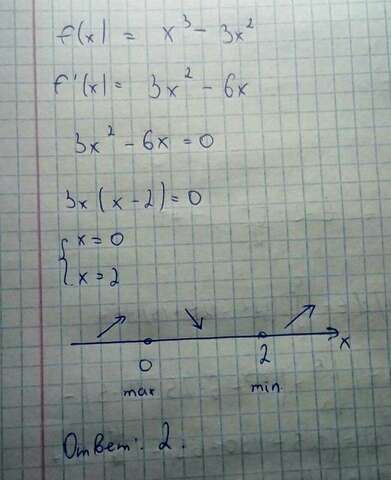 f(x) = x³ - 3x²
f'(x) = 3x² - 6x
3x² - 6x = 0
3x(x - 2) = 0
{ x = 0
x = 2
0 2 x
max min
Ответ: 2.